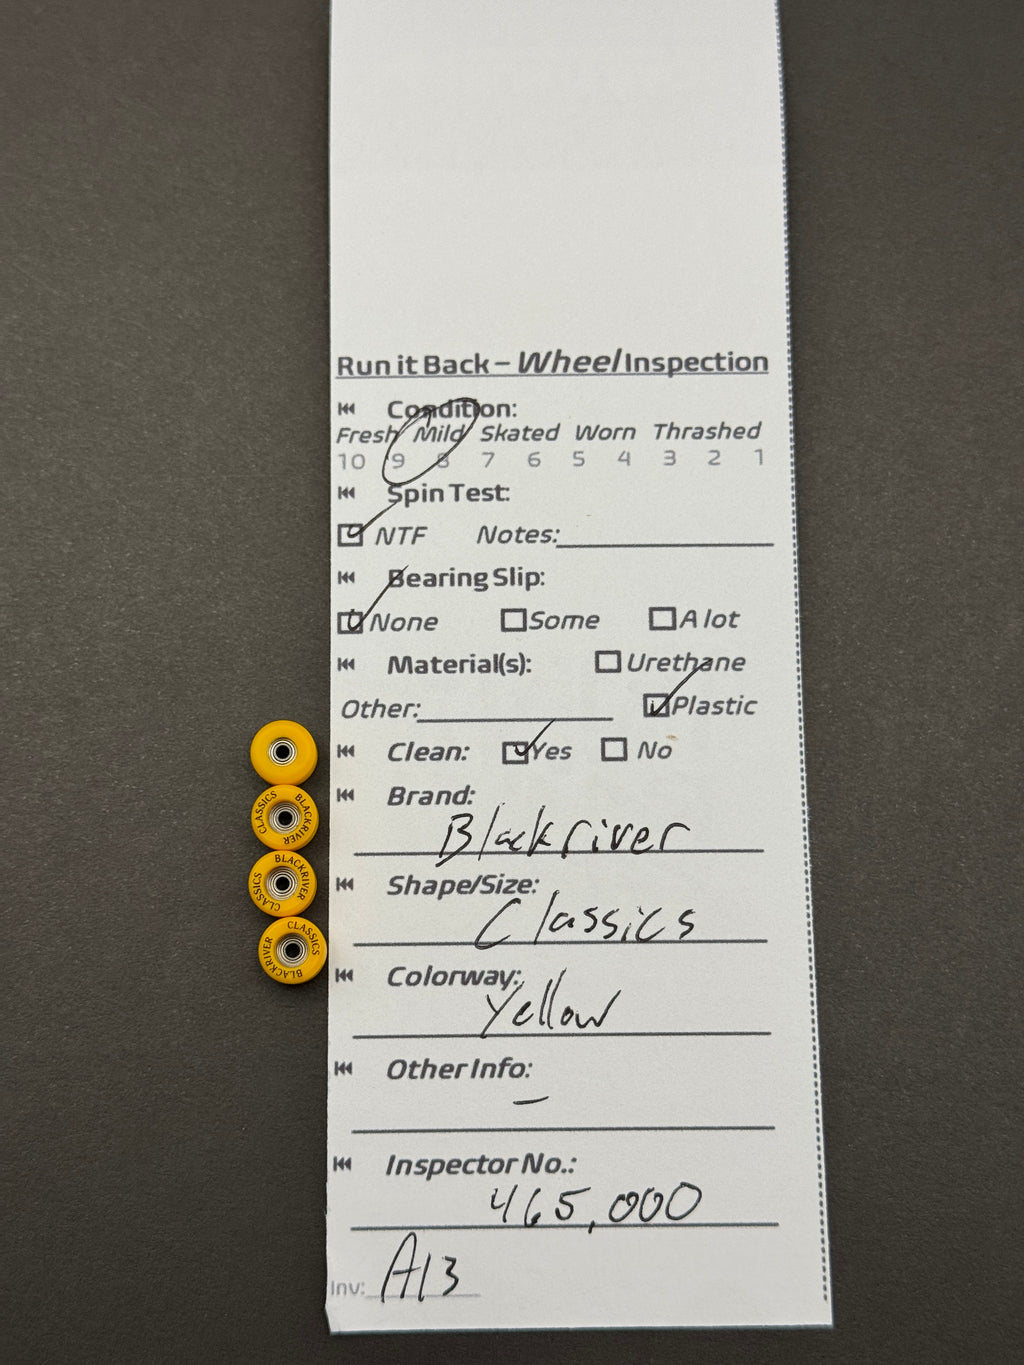 Run it Back – Wheel Inspection
Condition:
Fresh Mild Skated Worn Thrashed
10 9 8 7 6 5 4 3 2 1
Spin Test:
NTF Notes:
Bearing Slip:
None Some A lot
Material(s): Urethane
Other: Plastic
Clean: Yes No
Brand:
Blackriver
Shape/Size:
Classics
Colorway:
Yellow
Other Info:
–
Inspector No.:
465,000
Inv: A13
BLACKRIVER CLASSICS
BLACKRIVER CLASSICS
BLACKRIVER CLASSICS